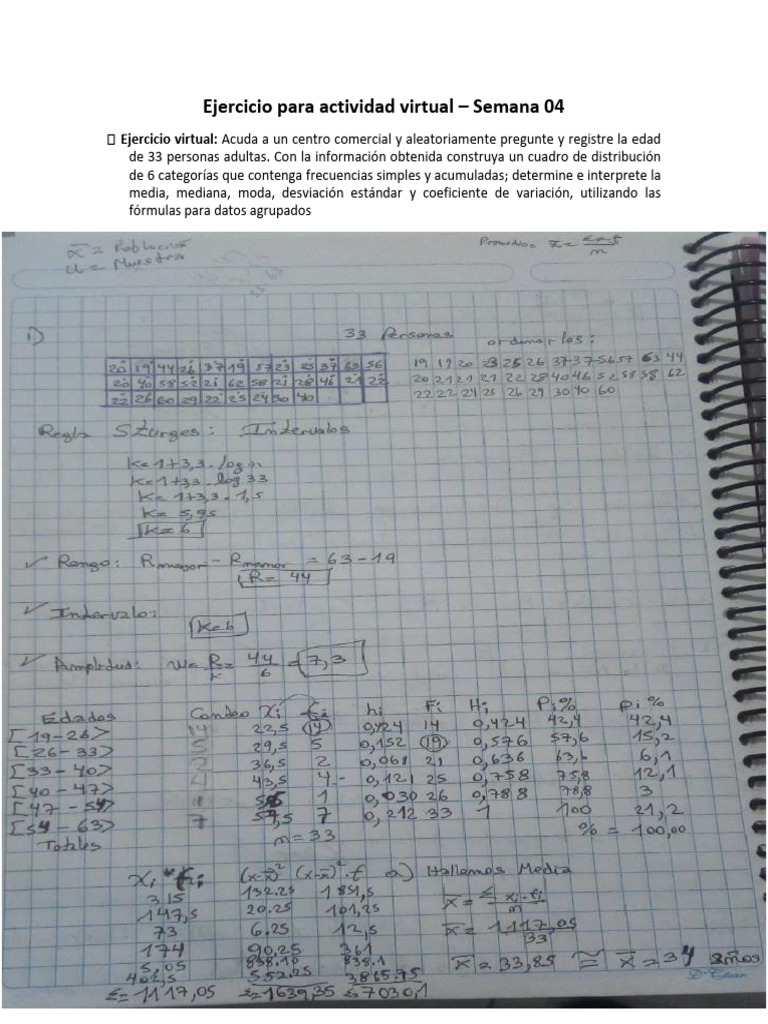 Ejercicio para actividad virtual – Semana 04
Ejercicio virtual: Acuda a un centro comercial y aleatoriamente pregunte y registre la edad
de 33 personas adultas. Con la información obtenida construya un cuadro de distribución
de 6 categorías que contenga frecuencias simples y acumuladas; determine e interprete la
media, mediana, moda, desviación estándar y coeficiente de variación, utilizando las
fórmulas para datos agrupados
x̄ = Población
u = Muestra
Promedio: x̄ =
1)
33 Personas
ordenarlos:
20 19 44 26 37 19 57 23 25 37 63 56
20 40 58 52 21 62 58 21 28 46 21 22
22 26 60 29 22 25 24 30 40
19 19 20 23 25 26 37 37 56 57 63 44
20 21 21 21 22 28 40 46 52 58 58 62
22 22 24 25 26 29 30 40 60
Regla Sturges: Intervalos
K=1+3,3 . log n
K=1+3,3 . log 33
K=1+3,3 . 1,5
K= 5,95
K=6
Rango: Rmayor - Rmenor = 63-19
R= 44
Intervalo:
K=6
Amplitud: W= R/K = 44/6 = 7,3
Edades Conteo Xi fi hi Fi Hi Pi% pi%
[19-26> 14 22,5 14 0,424 14 0,424 42,4 42,4
[26-33> 5 29,5 5 0,152 19 0,576 57,6 15,2
[33-40> 2 36,5 2 0,061 21 0,636 63,6 6,1
[40-47> 4 43,5 4 0,121 25 0,758 75,8 12,1
[47-54> 1 1 0,030 26 0,788 78,8 3
[54-63> 7 57,5 7 0,212 33 1 100 21,2
Totales n=33 % = 100,00
Xi * fi (x-x̄)² (x-x̄)².f a) Hallamos Media
315 132.25 1851,5
147,5 20.25 101,25
73 6.25 12,5
174 90.25 361
5,05 838.10 838.1
402,5 552.25 3865.75
Σ=1117,05 Σ=1639,35 Σ=7030,1
x̄ = Σ xi.fi / n
x̄ = 1117,05 / 33
x̄ = 33,85 ≅ x̄ = 34 años